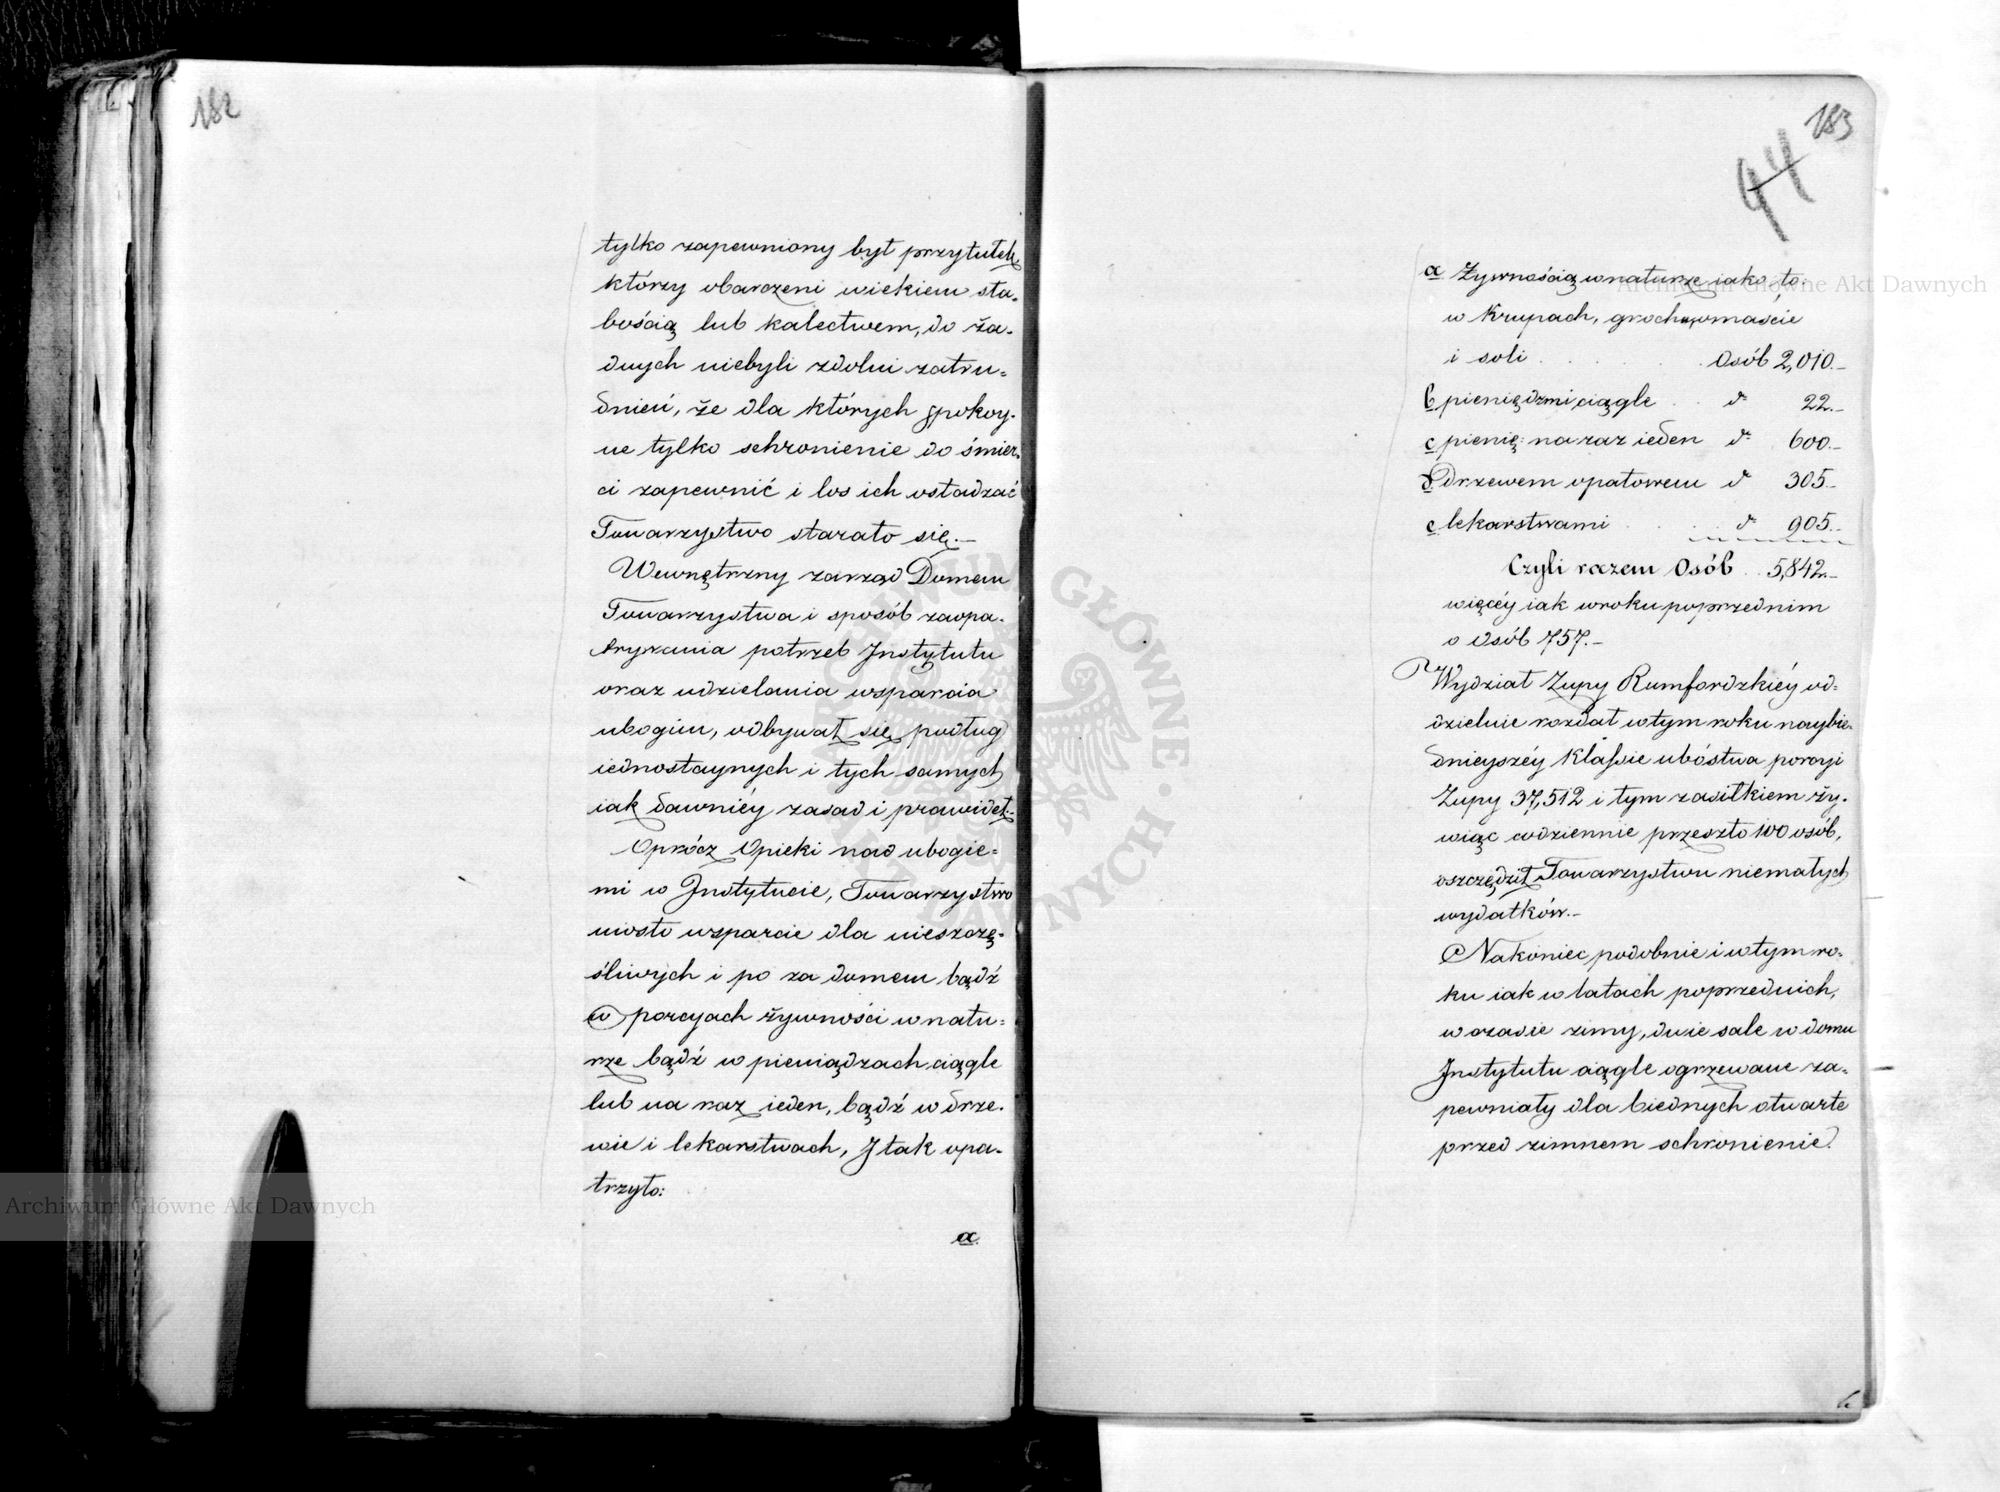 182
tylko zapewniony był przytułek,
którzy obarczeni wiekiem sła-
bością lub kalectwem, do ża-
dnych niebyli zdolni zatru-
dnień, że dla których spokoy-
ne tylko schronienie do śmier-
ci zapewnić i los ich osładzać
Towarzystwo starało się.—
Wewnętrzny zarząd Domem
Towarzystwa i sposób zaopa-
trywania potrzeb Instytutu
oraz udzielania wsparcia
ubogim, odbywał się podług
iednostaynych i tych samych
iak dawniéy zasad i prawideł.-
Oprócz Opieki nad ubogie-
mi w Instytucie, Towarzystwo
niosło wsparcie dla nieszczę-
śliwych i po za domem bądź
w porcyach żywności w natu-
rze bądź w pieniądzach ciągle
lub na raz ieden, bądź w drze-
wie i lekarstwach, I tak opa-
trzyło:
a.
183
44
a Żywnością w naturze iako to:
w Krupach, grochu, omaście
i soli . . . . Osób 2,010.-
b pieniędzmi ciągle . . do 22.-
c pienię: na raz ieden do 600.-
d Drzewem opałowem do 305.-
e lekarstwami . . . . do 905.-
Czyli razem Osób . . 5,842.-
więcéy iak w roku poprzednim
o Osób 757.-
Wydział Zupy Rumfordzkiéy od-
dzielnie rozdał w tym roku naybie-
dnieyszéy klassie ubóstwa porcyi
Zupy 37,512 i tym zasiłkiem ży-
wiąc codziennie przeszło 100 osób,
oszczędził Towarzystwu niemałych
wydatków.-
Nakoniec podobnie i w tym ro-
ku iak w latach poprzednich,
w czasie zimy, dwie sale w domu
Instytutu ciągle ogrzewane za-
pewniały dla biednych otwarte
przed zimnem schronienie.
Archiwum Główne Akt Dawnych
Archiwum Główne Akt Dawnych
ARCHIWUM GŁÓWNE AKT DAWNYCH